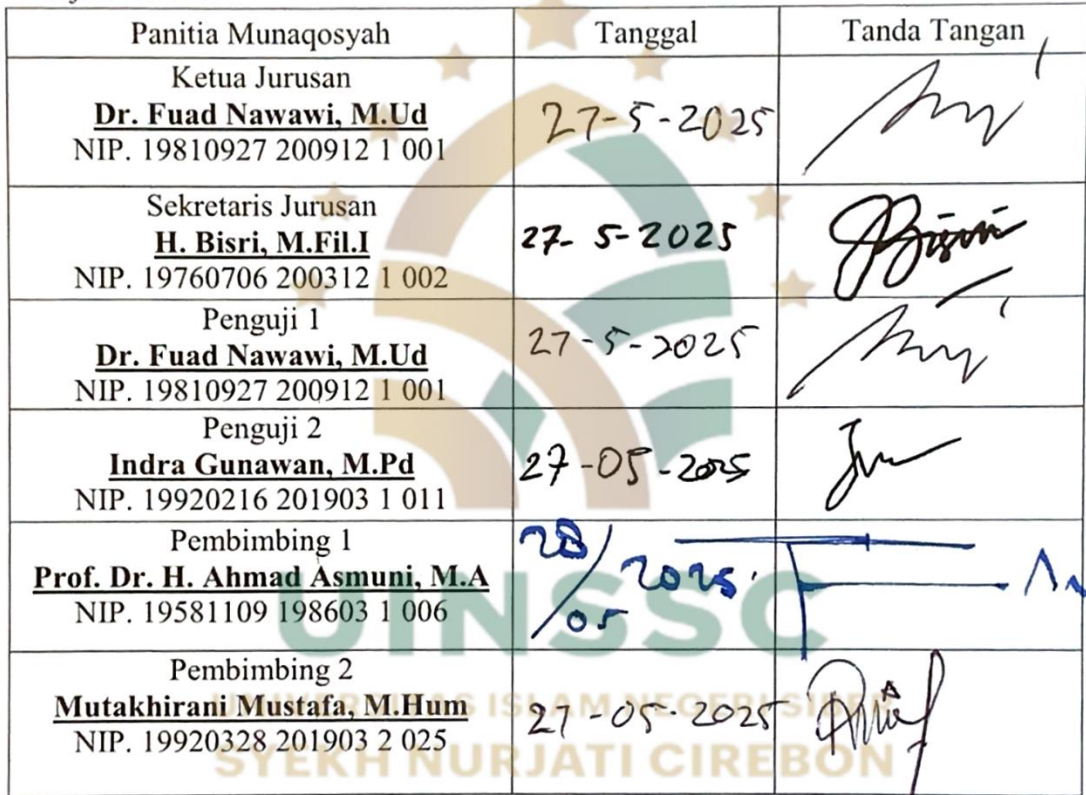 Panitia Munaqosyah Tanggal Tanda Tangan
Ketua Jurusan
Dr. Fuad Nawawi, M.Ud
NIP. 19810927 200912 1 001
27-5-2025
Sekretaris Jurusan
H. Bisri, M.Fil.I
NIP. 19760706 200312 1 002
27-5-2025
Bisri
Penguji 1
Dr. Fuad Nawawi, M.Ud
NIP. 19810927 200912 1 001
27-5-2025
Penguji 2
Indra Gunawan, M.Pd
NIP. 19920216 201903 1 011
27-05-2025
Pembimbing 1
Prof. Dr. H. Ahmad Asmuni, M.A
NIP. 19581109 198603 1 006
28/05 2025
Pembimbing 2
Mutakhirani Mustafa, M.Hum
NIP. 19920328 201903 2 025
27-05-2025
UINSSC
UNIVERSITAS ISLAM NEGERI SIBER
SYEKH NURJATI CIREBON